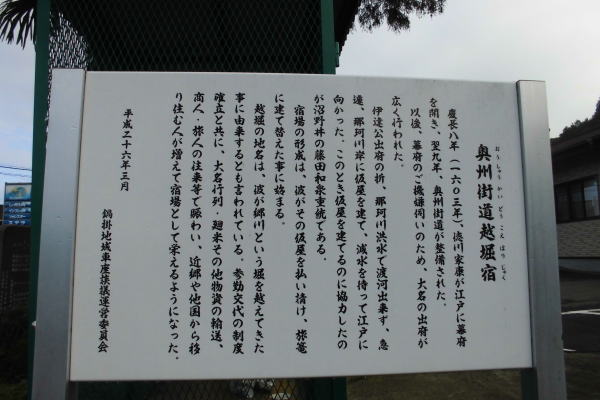 奥州街道越堀宿
おうしゅうかいどうこえぼりじゅく
慶長八年（一六〇三年）、徳川家康が江戸に幕府
を開き、翌九年、奥州街道が整備された。
以後、幕府のご機嫌伺いのため、大名の出府が
広く行われた。
伊達公出府の折、那珂川洪水で渡河出来ず、急
遽、那珂川岸に仮屋を建て、減水を待って江戸に
向かった。このとき仮屋を建てるのに協力したの
が沼野井の藤田和泉重継である。
宿場の形成は、彼がその仮屋を払い請け、旅篭
に建て替えた事に始まる。
越堀の地名は、彼が郷川という堀を越えてきた
事に由来するとも言われている。参勤交代の制度
確立と共に、大名行列・廻米その他物資の輸送、
商人・旅人の往来等で賑わい、近郷や他国から移
り住む人が増えて宿場として栄えるようになった。
平成二十六年三月
鍋掛地域車座談議運営委員会